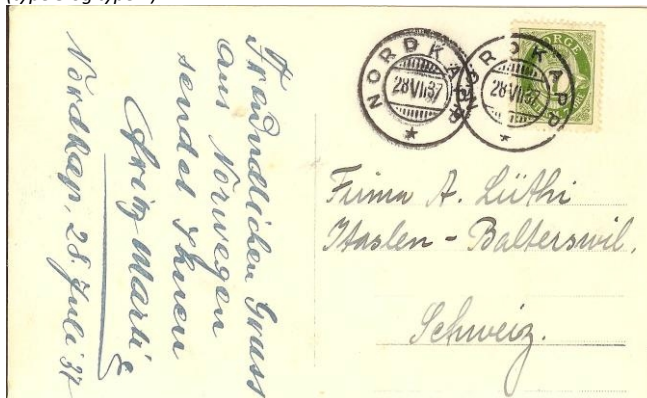 Freundlichen Gruss
aus Norwegen
sendet Ihnen
Fritz Marti
Nordkap, 28. Juli 37
NORDKAPP
28 VII 37
NORDKAPP
28 VII 37
NORGE
Firma A. Lüthi
Itaslen - Balterswil.
Schweiz.